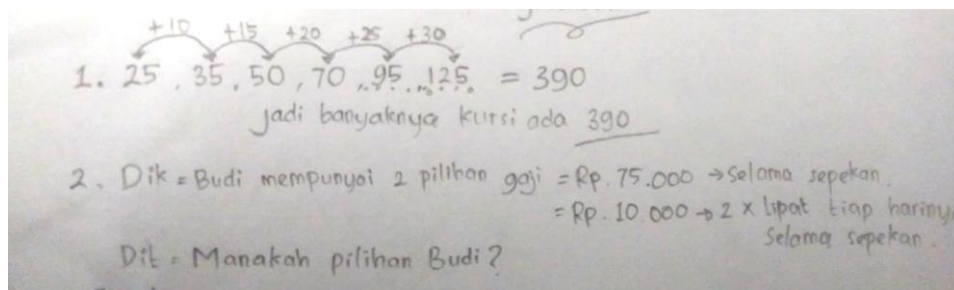 +10 +15 +20 +25 +30
1. 25, 35, 50, 70, 95, 125. = 390
jadi banyaknya kursi ada 390
2. Dik = Budi mempunyai 2 pilihan gaji = Rp. 75.000 → Selama sepekan.
= Rp. 10.000 → 2 x lipat tiap hariny
Selama sepekan.
Dit = Manakah pilihan Budi?